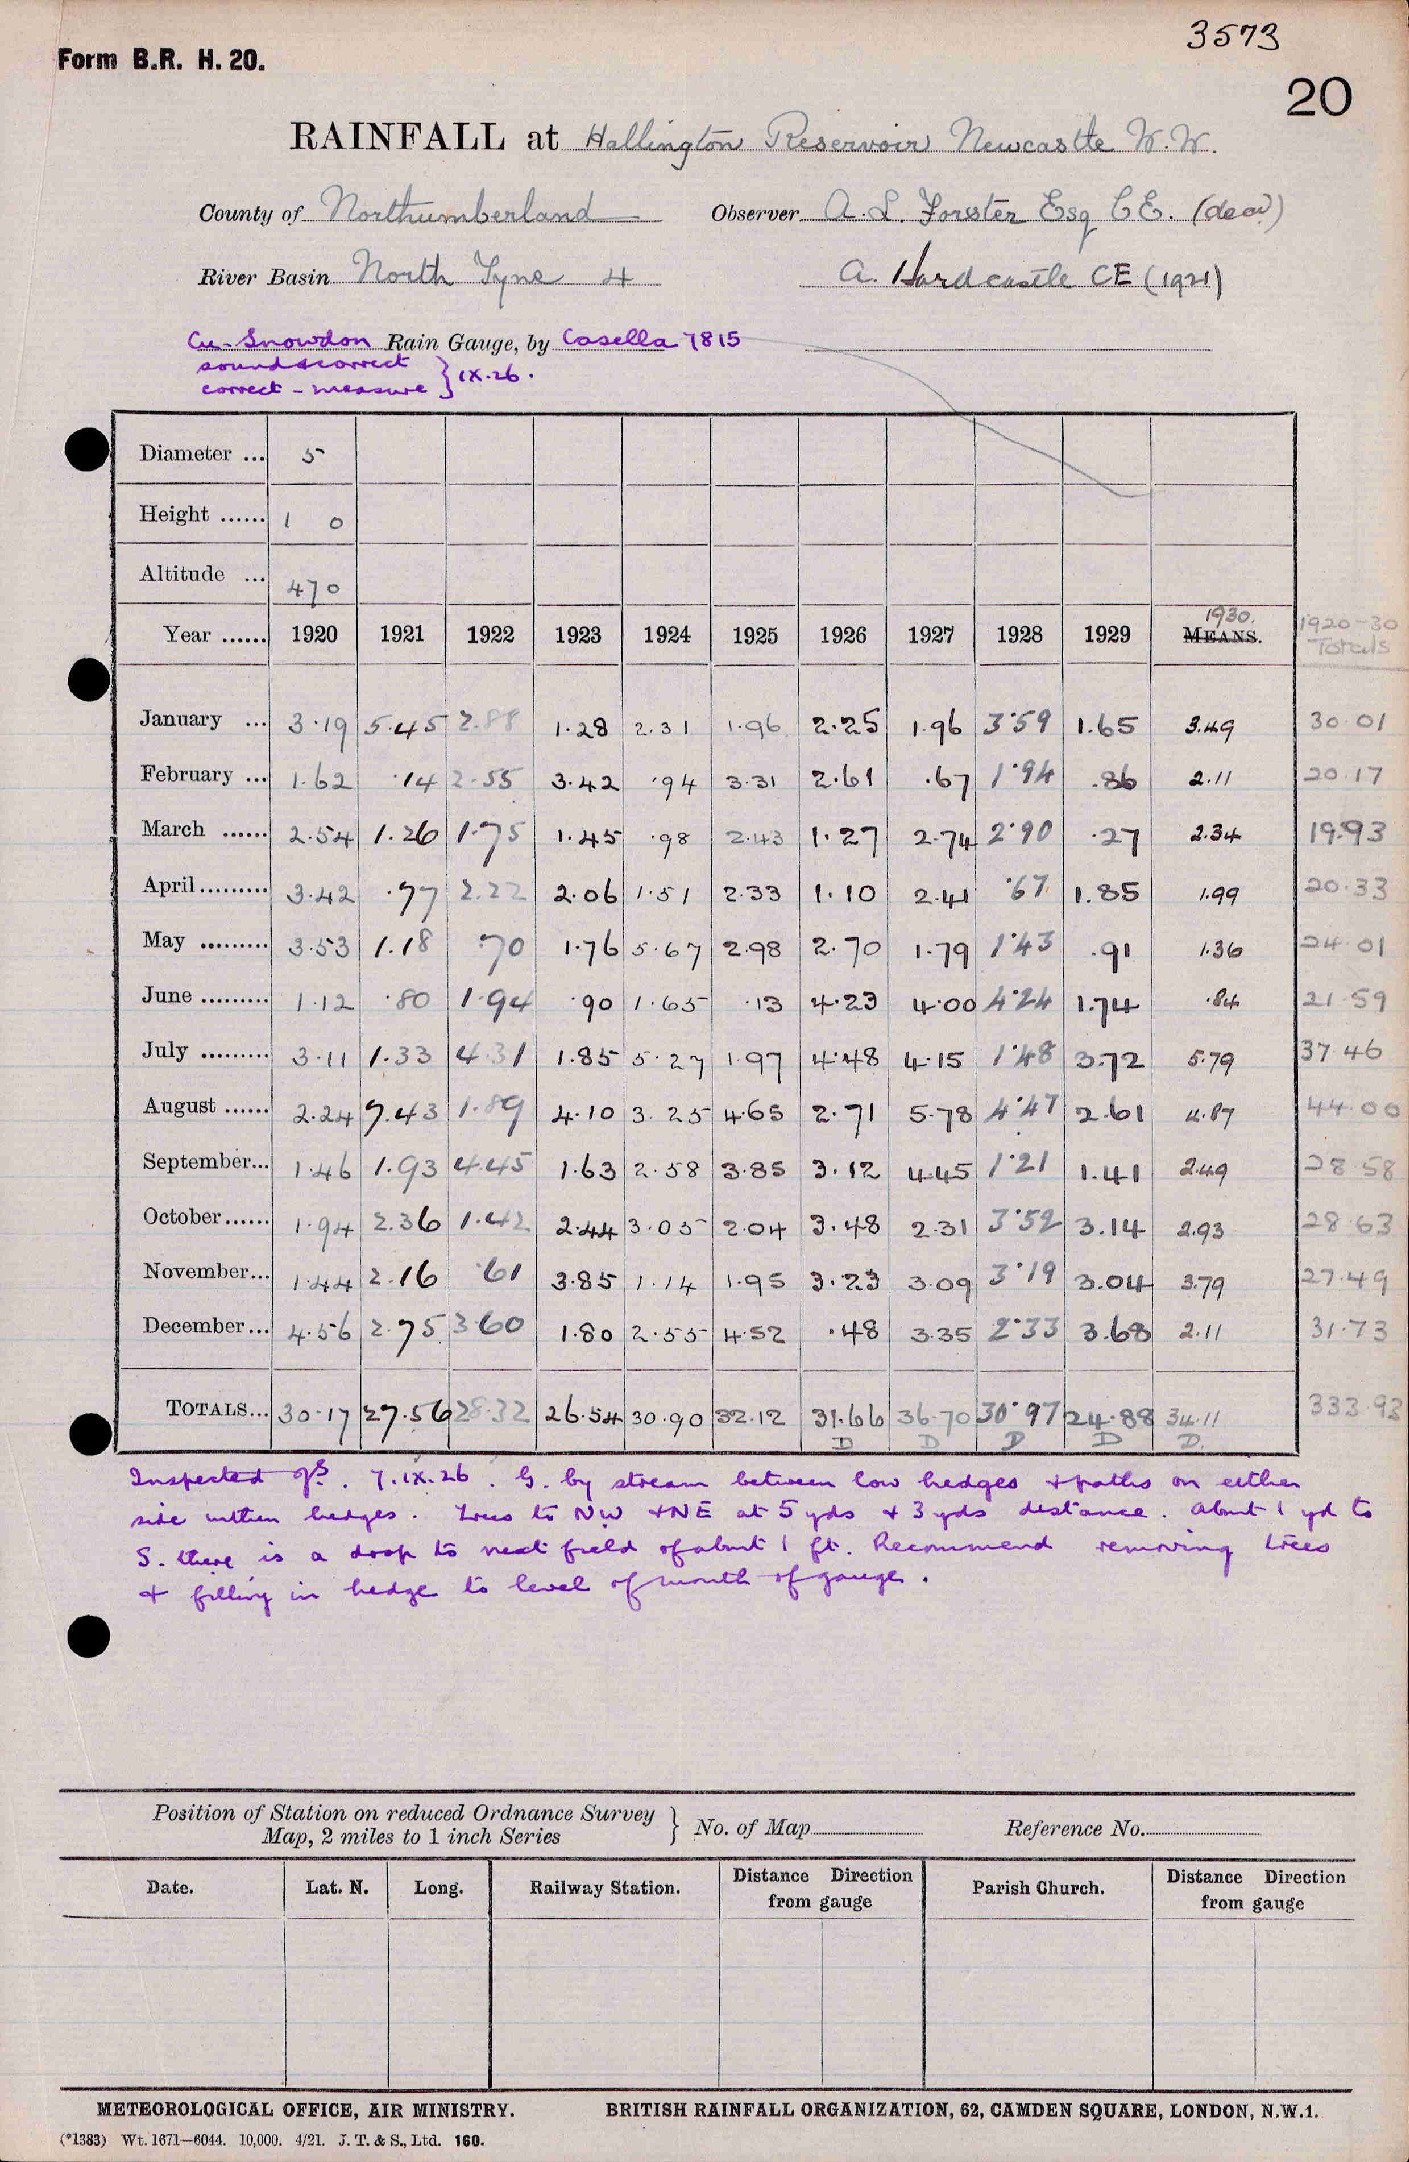 3573
Form B.R. H. 20.
20
RAINFALL at Hallington Reservoir Newcastle W.W.
County of Northumberland Observer A. L. Forster Esq C.E. (dead)
River Basin North Tyne 4 A. Hardcastle CE (1921)
Cu. Snowdon Rain Gauge, by Casella 7815
sound & correct
correct - measure } IX.26.
Diameter ... 5
Height ...... 1 0
Altitude ... 470
Year ...... 1920 1921 1922 1923 1924 1925 1926 1927 1928 1929 1930. MEANS. 1920-30 Totals
January ... 3.19 5.45 2.88 1.28 2.31 1.96 2.25 1.96 3.59 1.65 3.49 30.01
February ... 1.62 .14 2.55 3.42 .94 3.31 2.61 .67 1.94 .86 2.11 20.17
March ...... 2.54 1.26 1.75 1.45 .98 2.43 1.27 2.74 2.90 .27 2.34 19.93
April ......... 3.42 .77 2.22 2.06 1.51 2.33 1.10 2.41 .67 1.85 1.99 20.33
May ......... 3.53 1.18 .70 1.76 5.67 2.98 2.70 1.79 1.43 .91 1.36 24.01
June ......... 1.12 .80 1.94 .90 1.65 .13 4.23 4.00 4.24 1.74 .84 21.59
July ......... 3.11 1.33 4.31 1.85 5.27 1.97 4.48 4.15 1.48 3.72 5.79 37.46
August ...... 2.24 7.43 1.89 4.10 3.25 4.65 2.71 5.78 4.47 2.61 4.87 44.00
September... 1.46 1.93 4.45 1.63 2.58 3.85 3.12 4.45 1.21 1.41 2.49 28.58
October...... 1.94 2.36 1.42 2.44 3.05 2.04 3.48 2.31 3.52 3.14 2.93 28.63
November... 1.44 2.16 .61 3.85 1.14 1.95 3.23 3.09 3.19 3.04 3.79 27.49
December... 4.56 2.75 3.60 1.80 2.55 4.52 .48 3.35 2.33 3.68 2.11 31.73
TOTALS... 30.17 27.56 28.32 26.54 30.90 32.12 31.66 36.70 30.97 24.88 34.11 333.93
D D D D D.
Inspected 7.IX.26. G. by stream between low hedges & paths on either
side within hedges. Trees to NW & NE at 5 yds & 3 yds distance. About 1 yd to
S. there is a drop to next field of about 1 ft. Recommend removing trees
& filling in hedge to level of mouth of gauge.
Position of Station on reduced Ordnance Survey
Map, 2 miles to 1 inch Series } No. of Map Reference No.
Date. Lat. N. Long. Railway Station. Distance Direction from gauge Parish Church. Distance Direction from gauge
METEOROLOGICAL OFFICE, AIR MINISTRY. BRITISH RAINFALL ORGANIZATION, 62, CAMDEN SQUARE, LONDON, N.W.1.
(*1383) Wt. 1671—6044. 10,000. 4/21. J. T. & S., Ltd. 160.